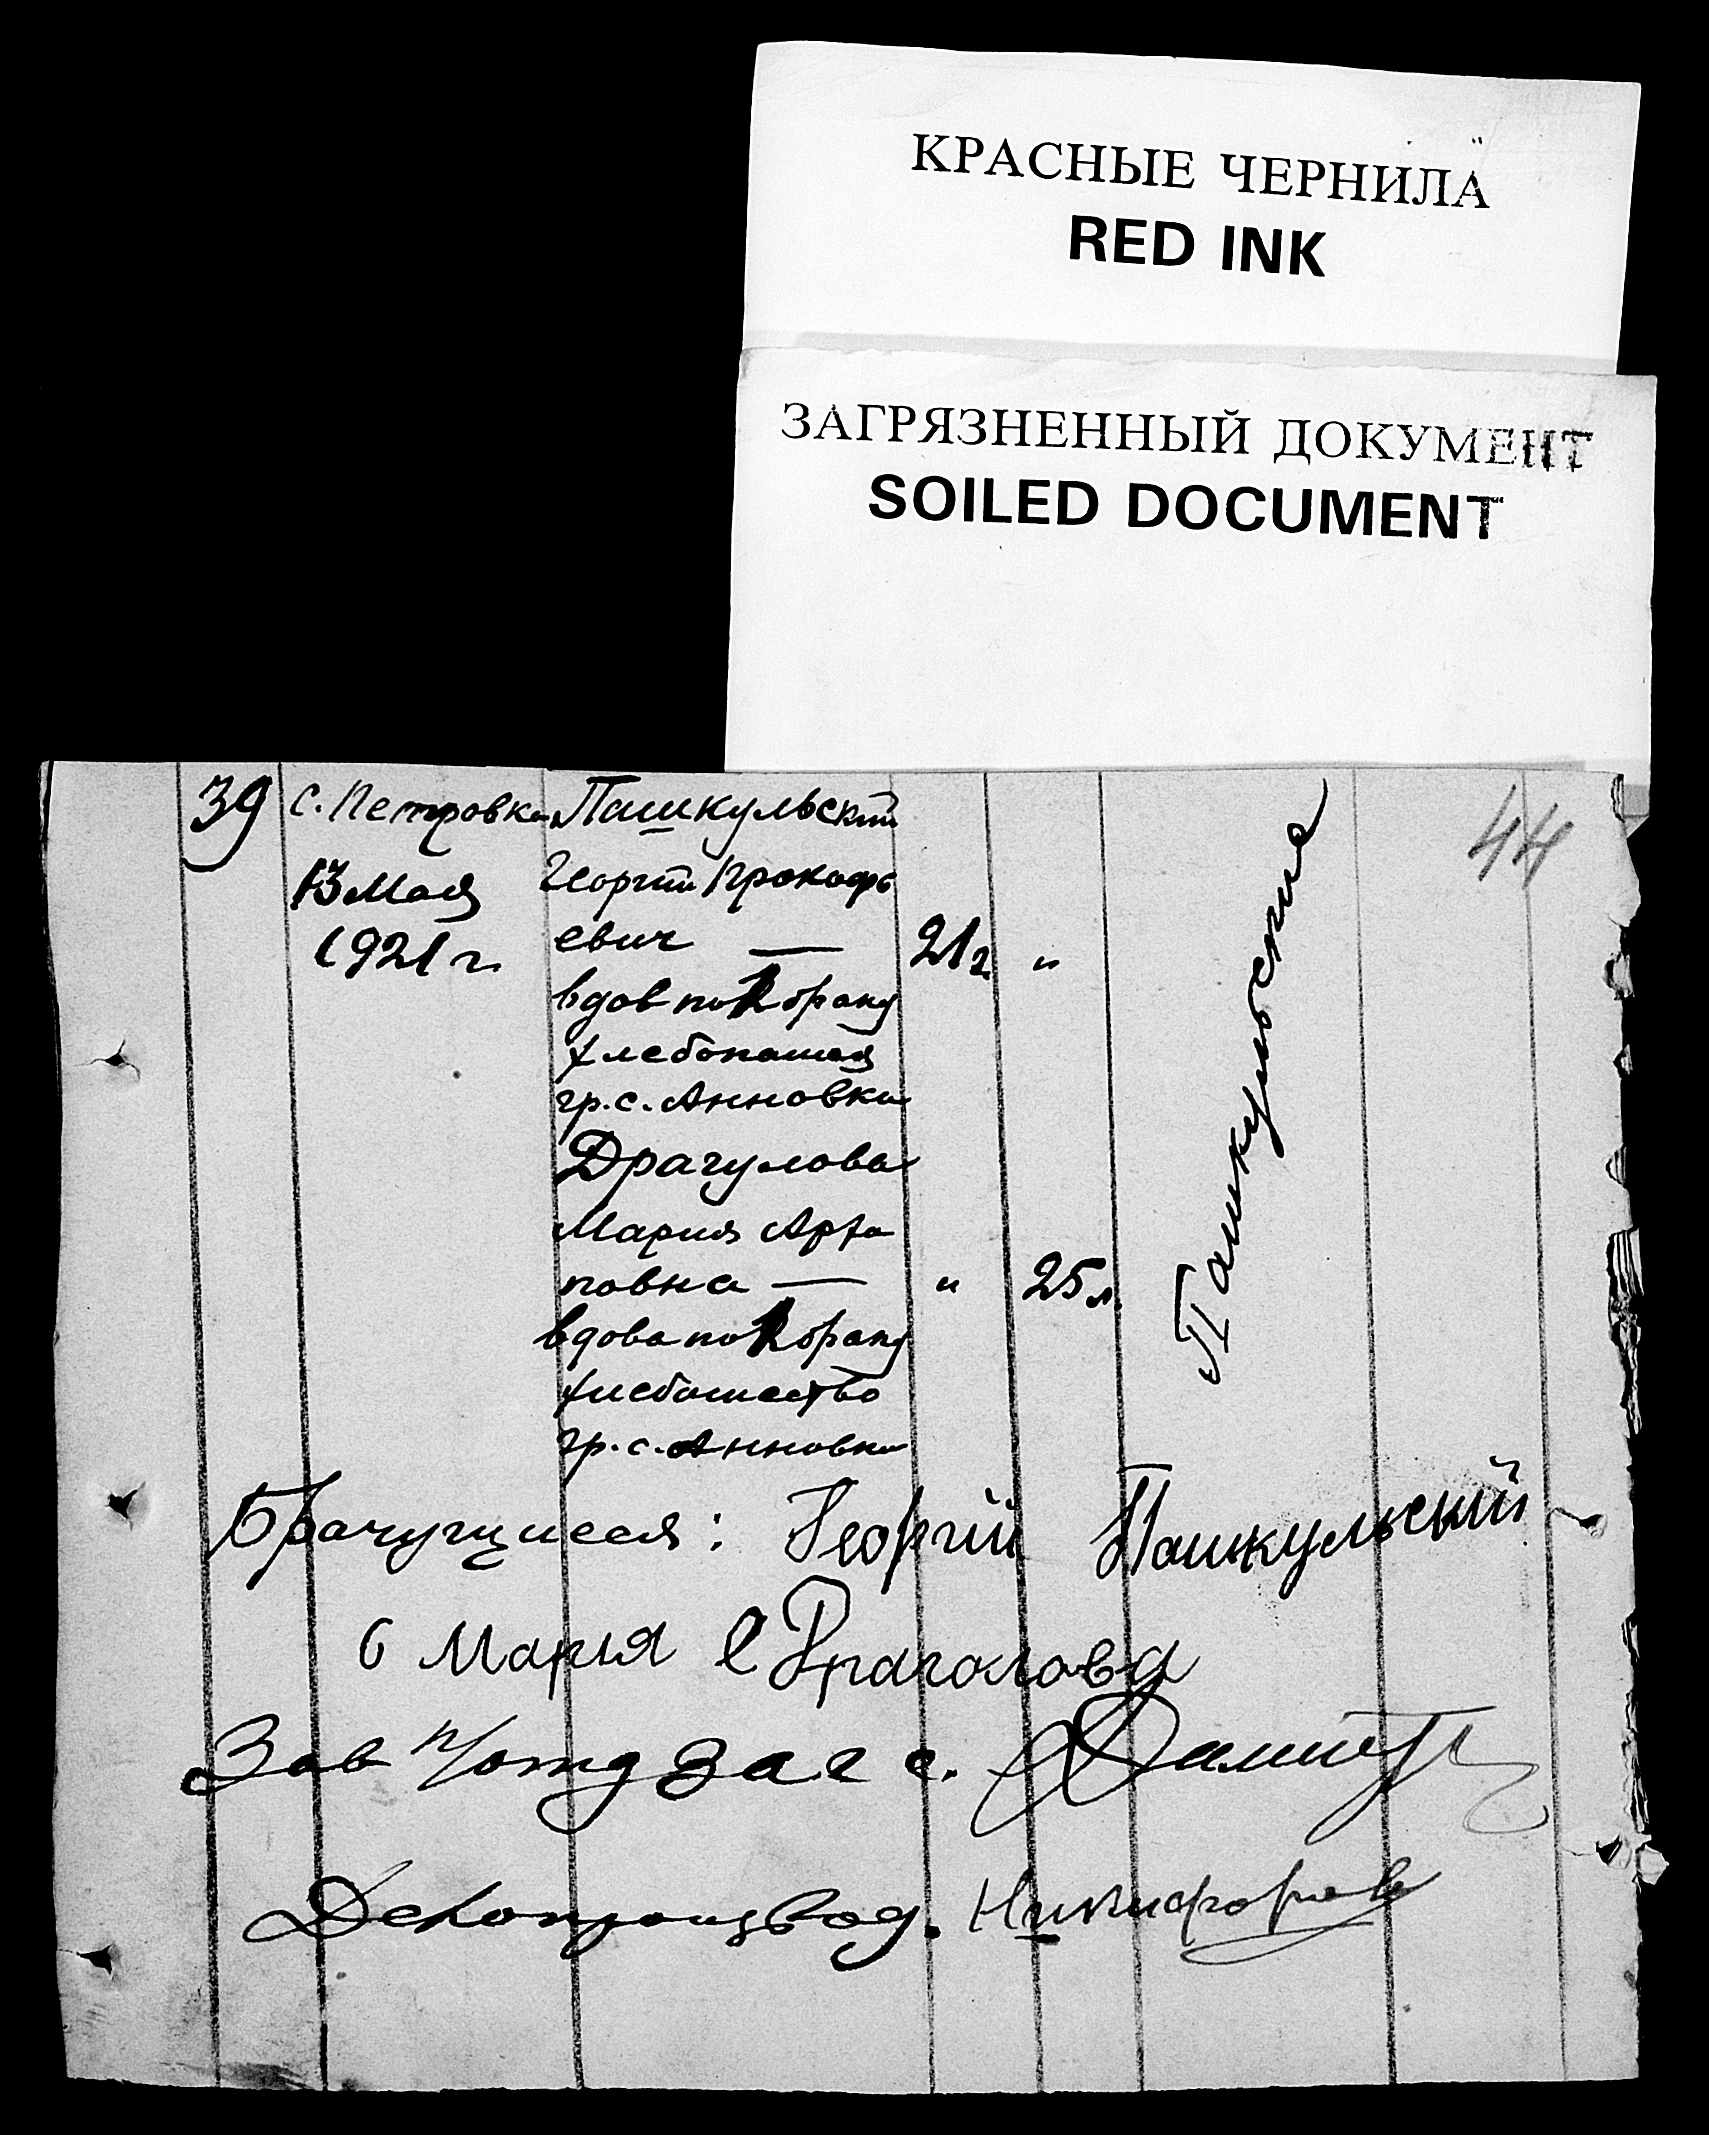 КРАСНЫЕ ЧЕРНИЛА
RED INK
ЗАГРЯЗНЕННЫЙ ДОКУМЕНТ
SOILED DOCUMENT
44
39
с. Петровка
13 Мая
1921 г.
Пашкульский
Георгий Прокофь
евич —
21 г. "
вдов по 1 браку
хлебопашец
гр. с. Анновки
Драгулова
Мария Арха
повна —
" 25 л.
вдова по 1 браку
гр. с. Анновки
Пашкульские
Брачущиеся: Георгий Пашкульский
Мария Драголова
Зав п/отд Загс.
Делопроизвод. Никифоров